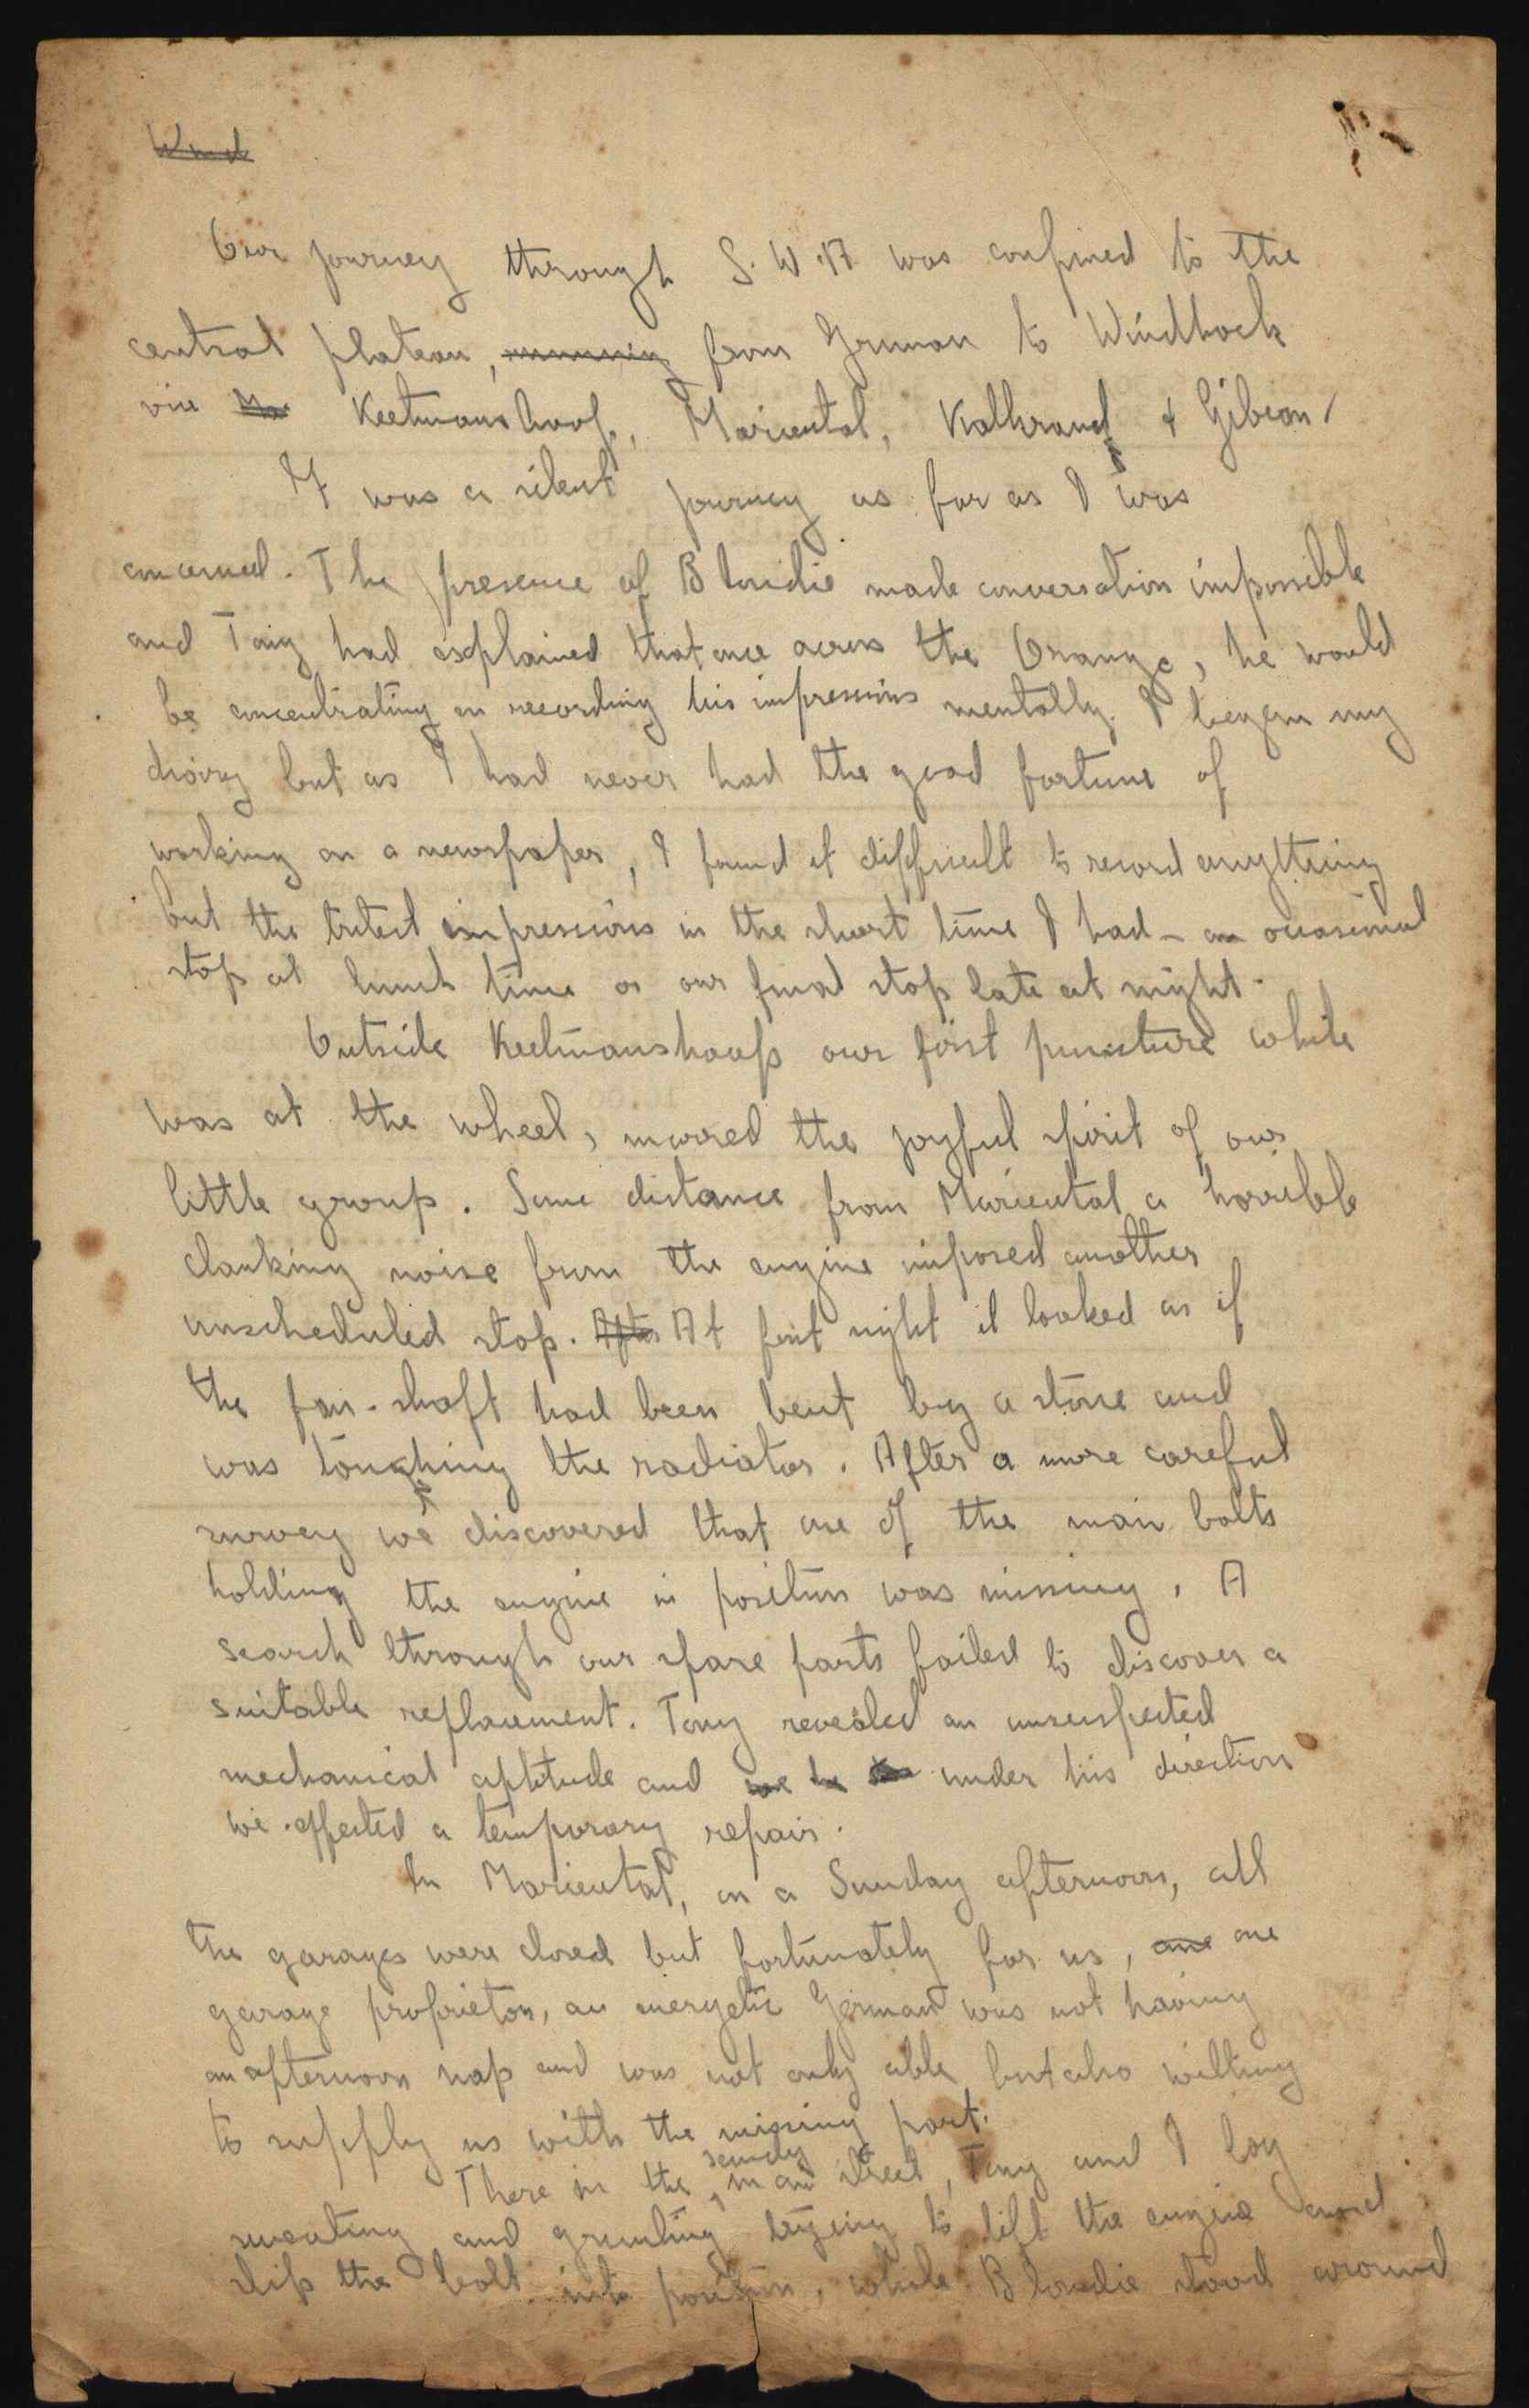 Wind
Our journey through S.W.A was confined to the
central plateau, running from Grunau to Windhoek
via Keetmanshoop, Mariental, Kalkrand & Gibeon.
It was a silent journey as far as I was
concerned. The presence of Blondie made conversation impossible
and Tony had explained that once across the Orange, he would
be concentrating on recording his impressions mentally. I began my
diary but as I had never had the good fortune of
working on a newspaper, I found it difficult to record anything
but the tritest impressions in the short time I had - an occasional
stop at lunch time or our final stop late at night.
Outside Keetmanshoop our first puncture while
was at the wheel, marred the joyful spirit of our
little group. Some distance from Mariental a horrible
clanking noise from the engine imposed another
unscheduled stop. After At first sight it looked as if
the fan-shaft had been bent by a stone and
was touching the radiator. After a more careful
survey we discovered that one of the main bolts
holding the engine in position was missing. A
search through our spare parts failed to discover a
suitable replacement. Tony revealed an unsuspected
mechanical aptitude and we he under his direction
we effected a temporary repair.
In Mariental, on a Sunday afternoon, all
the garages were closed but fortunately for us, one one
garage proprietor, an energetic German was not having
an afternoon nap and was not only able but also willing
to supply us with the missing part.
There in the sandy main street, Tony and I lay
sweating and grunting trying to lift the engine and
slip the bolt into position, while Blondie stood around